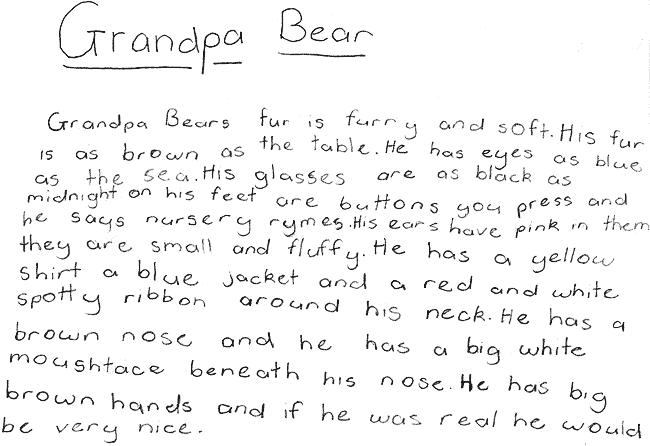 Grandpa Bear
Grandpa Bears fur is furry and soft. His fur
is as brown as the table. He has eyes as blue
as the sea. His glasses are as black as
midnight on his feet are buttons you press and
he says nursery rymes. His ears have pink in them
they are small and fluffy. He has a yellow
shirt a blue jacket and a red and white
spotty ribbon around his neck. He has a
brown nose and he has a big white
moushtace beneath his nose. He has big
brown hands and if he was real he would
be very nice.